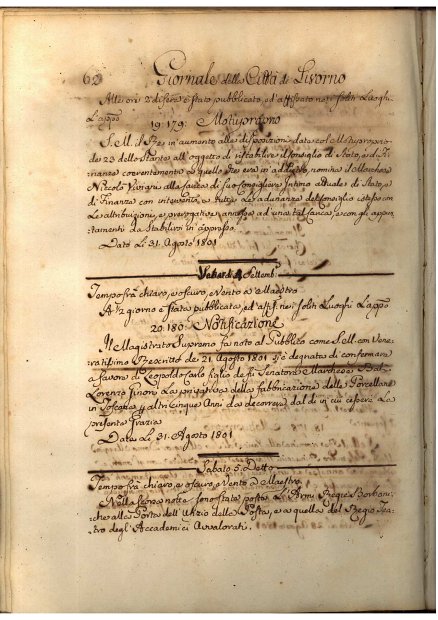 62 Giornale della Città di Livorno
Alle ore 2 di sera è stato pubblicato, ed affissato nei soliti Luoghi
L'appo
19. 179. Motuproprio
S. M. il Re in aumento alle disposizioni date col Motuproprio
de 23 dello stante all'oggetto di ristabilire il Consiglio di Stato, e di Fi-
nanze coerentemente a quello che era in addietro, nomina il Marchese
Niccolò alla carica di suo Consigliere Intimo attuale di Stato, e
di Finanze con intervento a tutte le adunanze del Consiglio istesso con
le attribuzioni, e prerogative annesse ad una tal Carica, e con gli appun-
tamenti da stabilirsi in appresso.
Dato Li 31. Agosto 1801
Venerdì 4 Settemb:
Tempo frà chiaro, e oscuro, e Vento a Maestro
A ½ giorno è stato pubblicata ed aff: nei soliti Luoghi L'appo
20. 180. Notificazione
Il Magistrato Supremo fa noto al Pubblico come S. M. con Vene-
ratissimo Rescritto de 21. Agosto 1801 si è degnata di confermare
a favore di Leopoldo Carlo figlio del fù Senatore Marchese
Lorenzo Ginori La privativa della fabbricazione delle Porcellane
in Toscana p altri Cinque Anni da decorrere dal dì in cui essere La
presente Grazia
Data Li 31. Agosto 1801
Sabato 5. Detto
Tempo frà chiaro, e oscuro, e Vento a Maestro.
Nella scorsa notte sono state poste le Armi Regie Borboni-
che alla Porta dell'Ufizio della Posta, e a quella del Regio Tea-
tro degl'Accademici Avvalorati.